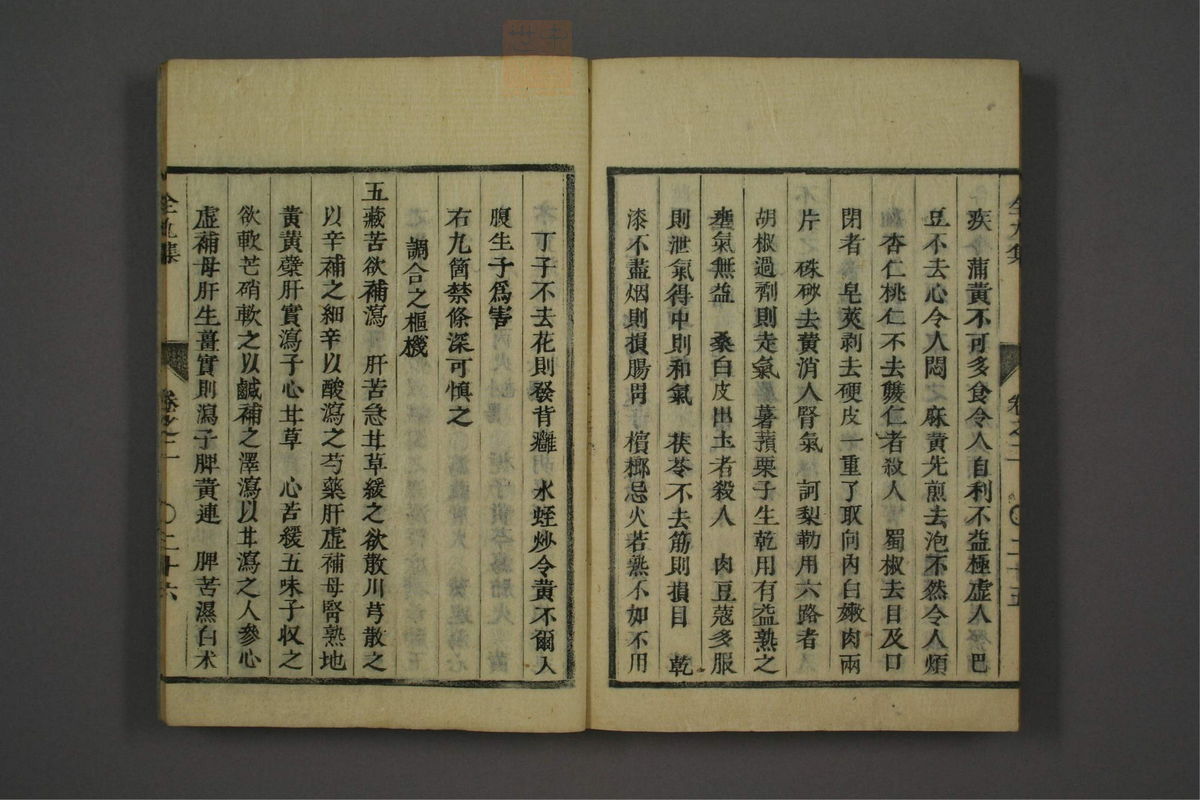 疾 蒲黄不可多食令人自利不益極虚人 巴
豆不去心令人悶 麻黄先煎去泡不然令人煩
杏仁桃仁不去雙仁者殺人 蜀椒去目及口
閉者 皂莢剥去硬皮一重了取向内白嫩肉兩
片 硃砂去黄消人腎氣 訶梨勒用六路者
胡椒過劑則走氣 薯蕷栗子生乾用有益熟之
壅氣無益 桑白皮出土者殺人 肉豆蔻多服
則泄氣得中則和氣 茯苓不去筋則損目 乾
漆不盡烟則損腸胃 檳榔忌火若熟不如不用
丁子不去花則發背癰 水蛭炒令黄不爾入
腹生子爲害
右九箇禁條深可慎之
調合之樞機
五藏苦欲補瀉 肝苦急甘草緩之欲散川芎散之
以辛補之細辛以酸瀉之芍藥肝虚補母腎熟地
黄黄蘗肝實瀉子心甘草 心苦緩五味子収之
欲軟芒硝軟之以鹹補之澤瀉以甘瀉之人參心
虚補母肝生薑實則瀉子脾黄連 脾苦濕白术
全九集 卷之二 〇二十六